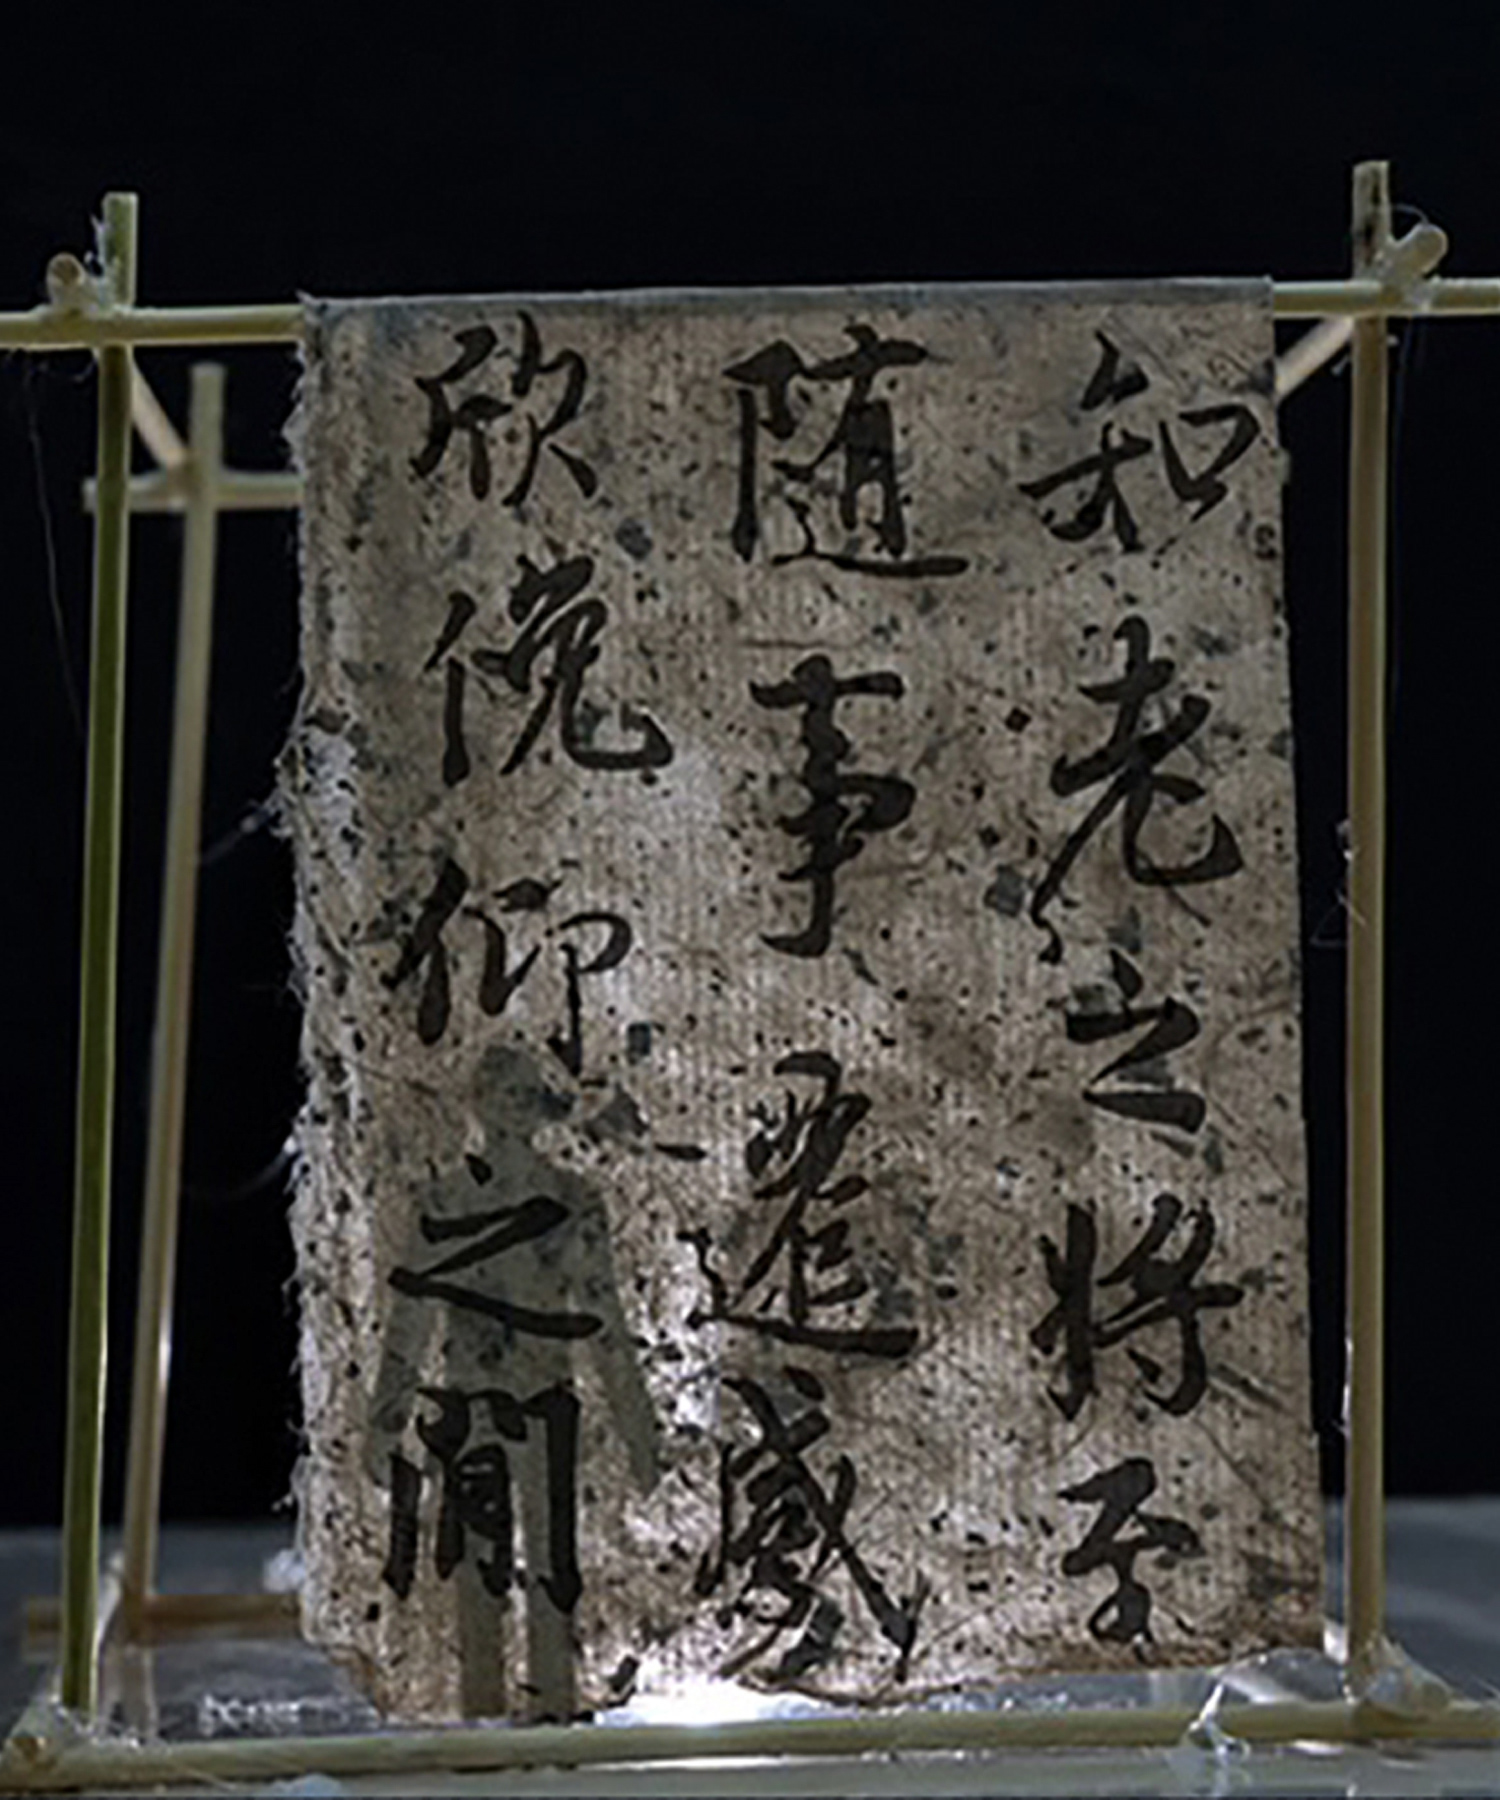 知老之将至
随事遷感
欣俛仰之閒